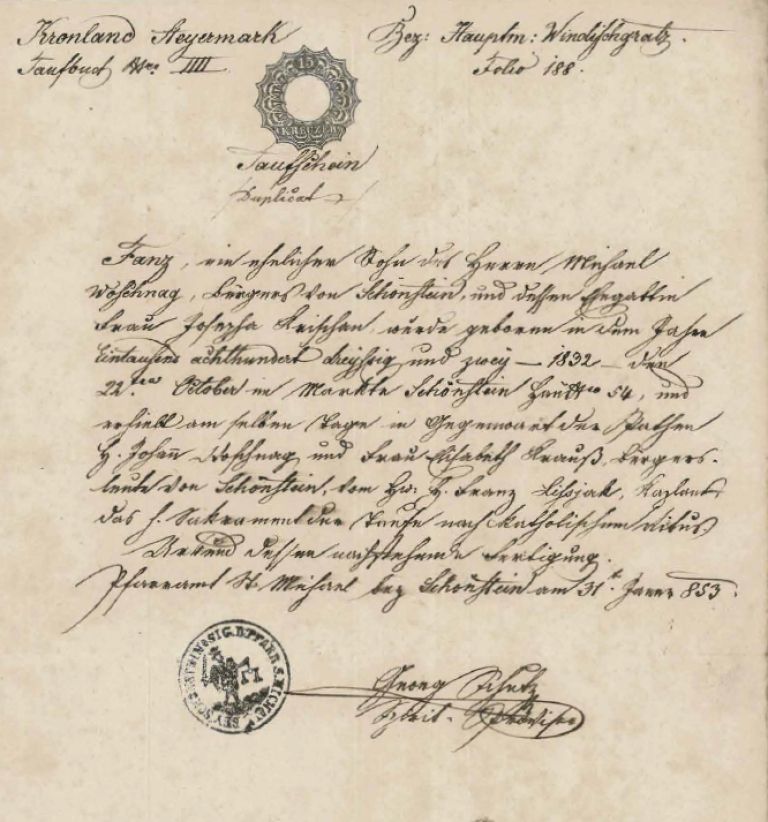 Kronland Steyermark
Bez: Hauptm: Windischgratz.
Taufbuch Nro IIII.
Folio 188.
15
KREUZER
Taufschein
Duplicat
Fanz, ein ehelicher Sohn des Herrn Michael
Woschnag, bürgers von Schönstein, und dessen Ehegattin
Frau Josepha Krischan wurde geboren in dem Jahre
Eintausend achthundert dreyssig und zwey – 1832 – den
22ten October im Markte Schönstein Haus Nro 54, und
erhielt am selben Tage in Gegenwart der Pathen
H. Johann Woschnag und Frau Elisabeth Krauß, bürgers-
leute von Schönstein, vom Hw: H. Franz Lissjak, Kaplan
das h. Sakrament der Taufe nach katholischem Ritus.
Urkund dessen nachstehende Fertigung.
Pfarramt St. Michael bey Schönstein am 31t Jänner 853.
SIG. D. PFARR S. MICHAEL BEY SCHÖNSTEIN
Georg Schutz
Provisor